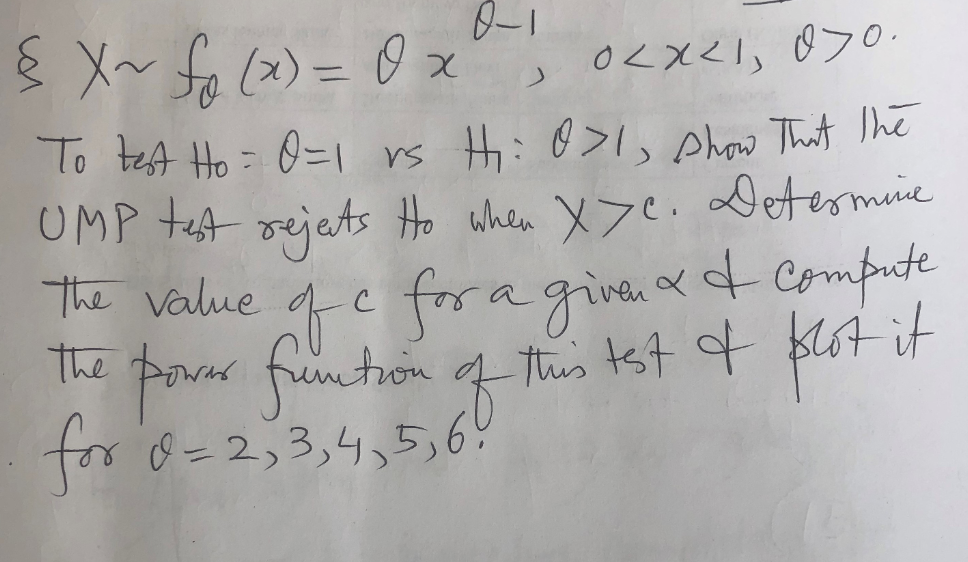 § X ~ f_θ(x) = θ x^{θ-1}, 0<x<1, θ>0.
To test H₀ = θ=1 vs H₁: θ>1, show that the
UMP test rejects H₀ when X>c. Determine
the value of c for a given α & compute
the power function of this test & plot it
for θ = 2, 3, 4, 5, 6.